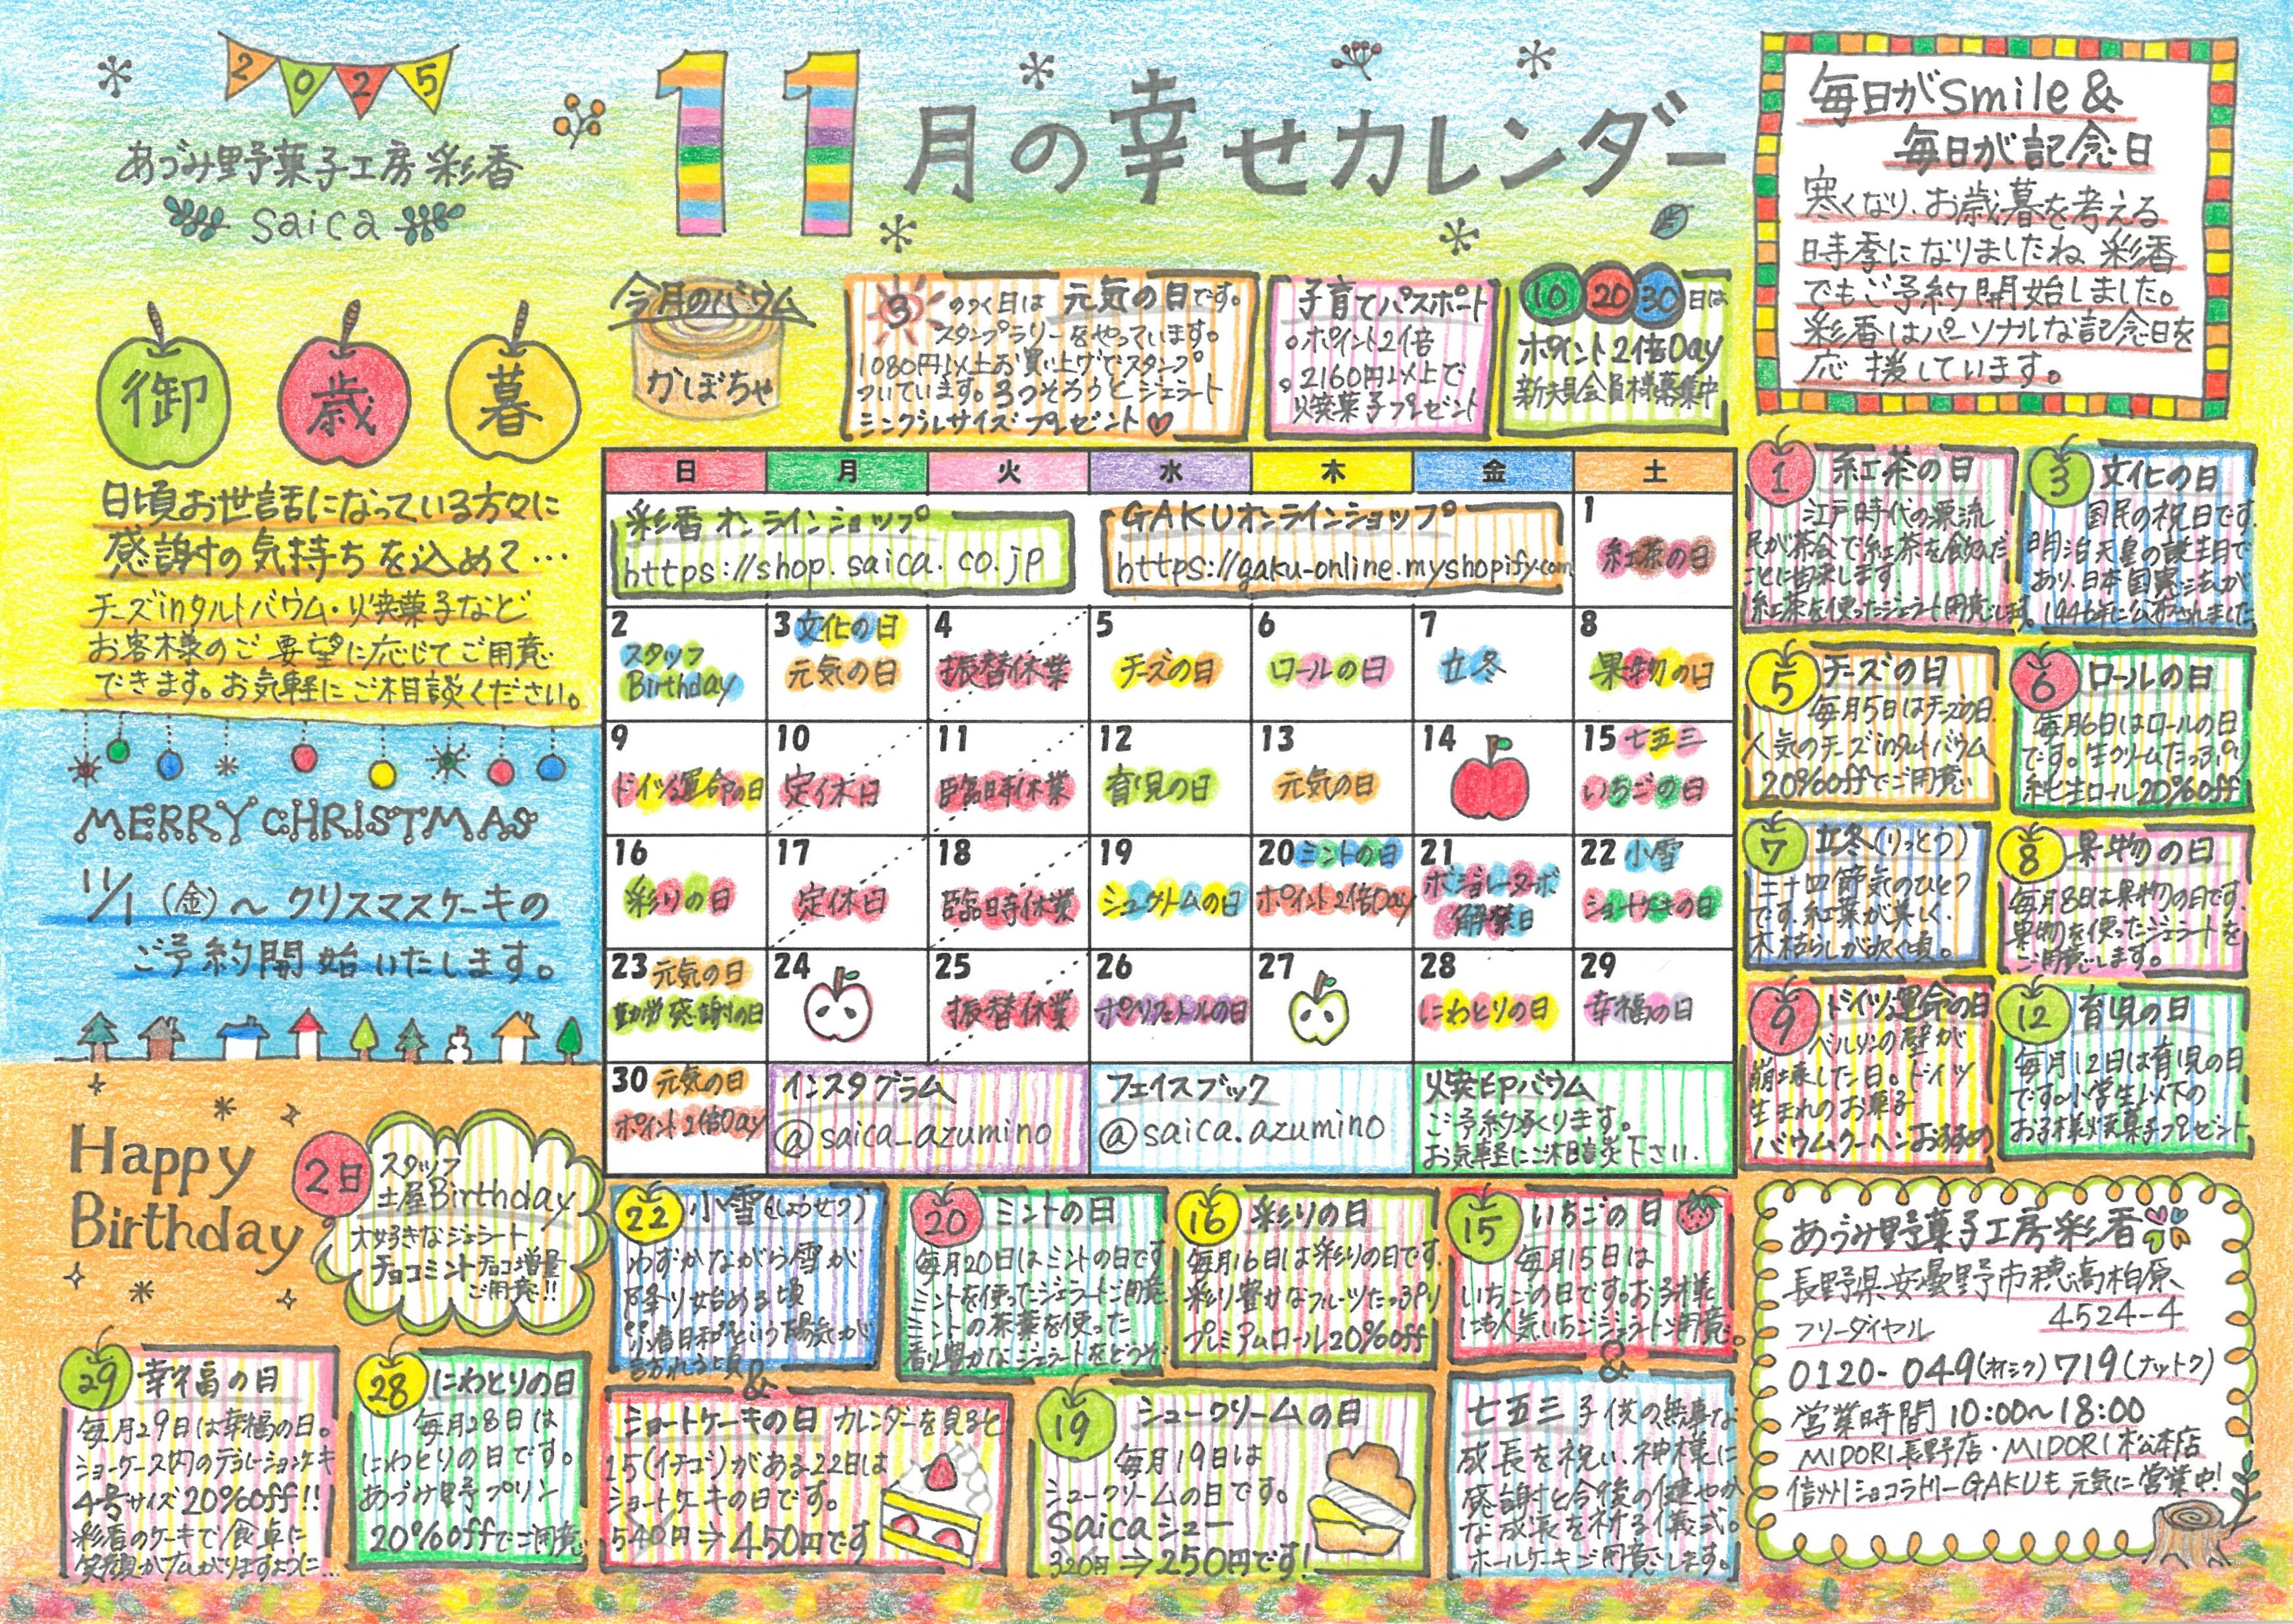 2025
あづみ野菓子工房 彩香
saica
11月の幸せカレンダー
毎日がSmile&
毎日が記念日
寒くなり、お歳暮を考える
時季になりましたね 彩香
でもご予約開始しました。
彩香はパーソナルな記念日を
応援しています。
御 歳 暮
日頃お世話になっている方々に
感謝の気持ちを込めて…
チーズinタルトバウム・焼菓子など
お客様のご要望に応じてご用意
できます。お気軽にご相談ください。
MERRY CHRISTMAS
11/1(金)~クリスマスケーキの
ご予約開始いたします。
Happy
Birthday
2日 スタッフ
土屋Birthday
大好きなジェラート
チョコミントチョコ増量
ご用意!!
今月のバウム
かぼちゃ
3のつく日は 元気の日です。
スタンプラリーをやっています。
1080円以上お買い上げでスタンプ
ついています。3つそろうとジェラート
シングルサイズプレゼント
子育てパスポート
。ポイント2倍
。2160円以上で
焼菓子プレゼント
10 20 30 日は
ポイント2倍Day
新規会員様募集中
日 月 火 水 木 金 土
彩香オンラインショップ
https://shop.saica.co.jp
GAKUオンラインショップ
https://gaku-online.myshopify.com
1 紅茶の日
2 スタッフ Birthday
3 文化の日 元気の日
4 振替休業
5 チーズの日
6 ロールの日
7 立冬
8 果物の日
9 ドイツ運命の日
10 定休日
11 臨時休業
12 育児の日
13 元気の日
14
15 七五三 いちごの日
16 彩りの日
17 定休日
18 臨時休業
19 シュークリームの日
20 ミントの日 ポイント2倍Day
21 ボジョレーヌーボ 解禁日
22 小雪 ショートケーキの日
23 元気の日 勤労感謝の日
24
25 振替休業
26
27
28 にわとりの日
29 幸福の日
30 元気の日 ポイント2倍Day
インスタグラム
@saica_azumino
フェイスブック
@saica.azumino
焼印バウム
ご予約承ります。
お気軽にご相談下さい。
1 紅茶の日
江戸時代の漂流
民が茶会で紅茶を飲んだ
ことに由来します
紅茶を使ったジェラート用意します。
3 文化の日
国民の祝日です。
明治天皇の誕生日で
あり、日本国憲法が
1946年に公布されました
5 チーズの日
毎月5日はチーズの日
人気のチーズinタルトバウム
20%offでご用意
6 ロールの日
毎月6日はロールの日
です。生クリームたっぷり
純生ロール20%off
7 立冬(りっとう)
二十四節気のひとつ
です。紅葉が美しく、
木枯らしが吹く頃。
8 果物の日
毎月8日は果物の日です。
果物を使ったジェラートを
ご用意します。
9 ドイツ運命の日
ベルリンの壁が
崩壊した日。ドイツ
生まれのお菓子
バウムクーヘンおすすめ
12 育児の日
毎月12日は育児の日
です。小学生以下の
お子様焼菓子プレゼント
22 小雪(しょうせつ)
わずかながら雪が
降り始める頃
"小春日和"という陽気が
言われる頃
&
ショートケーキの日 カレンダーを見ると
15(イチゴ)がある22日は
ショートケーキの日です。
540円⇒450円です
20 ミントの日
毎月20日はミントの日です
ミントを使ったジェラートご用意
ミントの茶葉を使った
香り豊かなジェラートをどうぞ
16 彩りの日
毎月16日は彩りの日です。
彩り豊かなフルーツたっぷり
プレミアムロール20%off
15 いちごの日
毎月15日は
いちごの日です。お子様
にも人気いちごジェラートご用意。
&
七五三 子供の無事な
成長を祝い、神様に
感謝と今後の健やか
な成長を祈る儀式。
ホールケーキご用意します。
19 シュークリームの日
毎月19日は
シュークリームの日です。
Saicaシュー
320円⇒250円です!
29 幸福の日
毎月29日は幸福の日。
ショーケース内のデコレーションケーキ
4号サイズ20%off!!
彩香のケーキで食卓に
笑顔が広がりますように…
28 にわとりの日
毎月28日は
にわとりの日です。
あづみ野プリン
20%offでご用意
あづみ野菓子工房彩香
長野県安曇野市穂高柏原
4524-4
フリーダイヤル
0120-049(オイシク)719(ナットク)
営業時間10:00~18:00
MIDORI長野店・MIDORI松本店
信州ショコラトリーGAKUも元気に営業中!